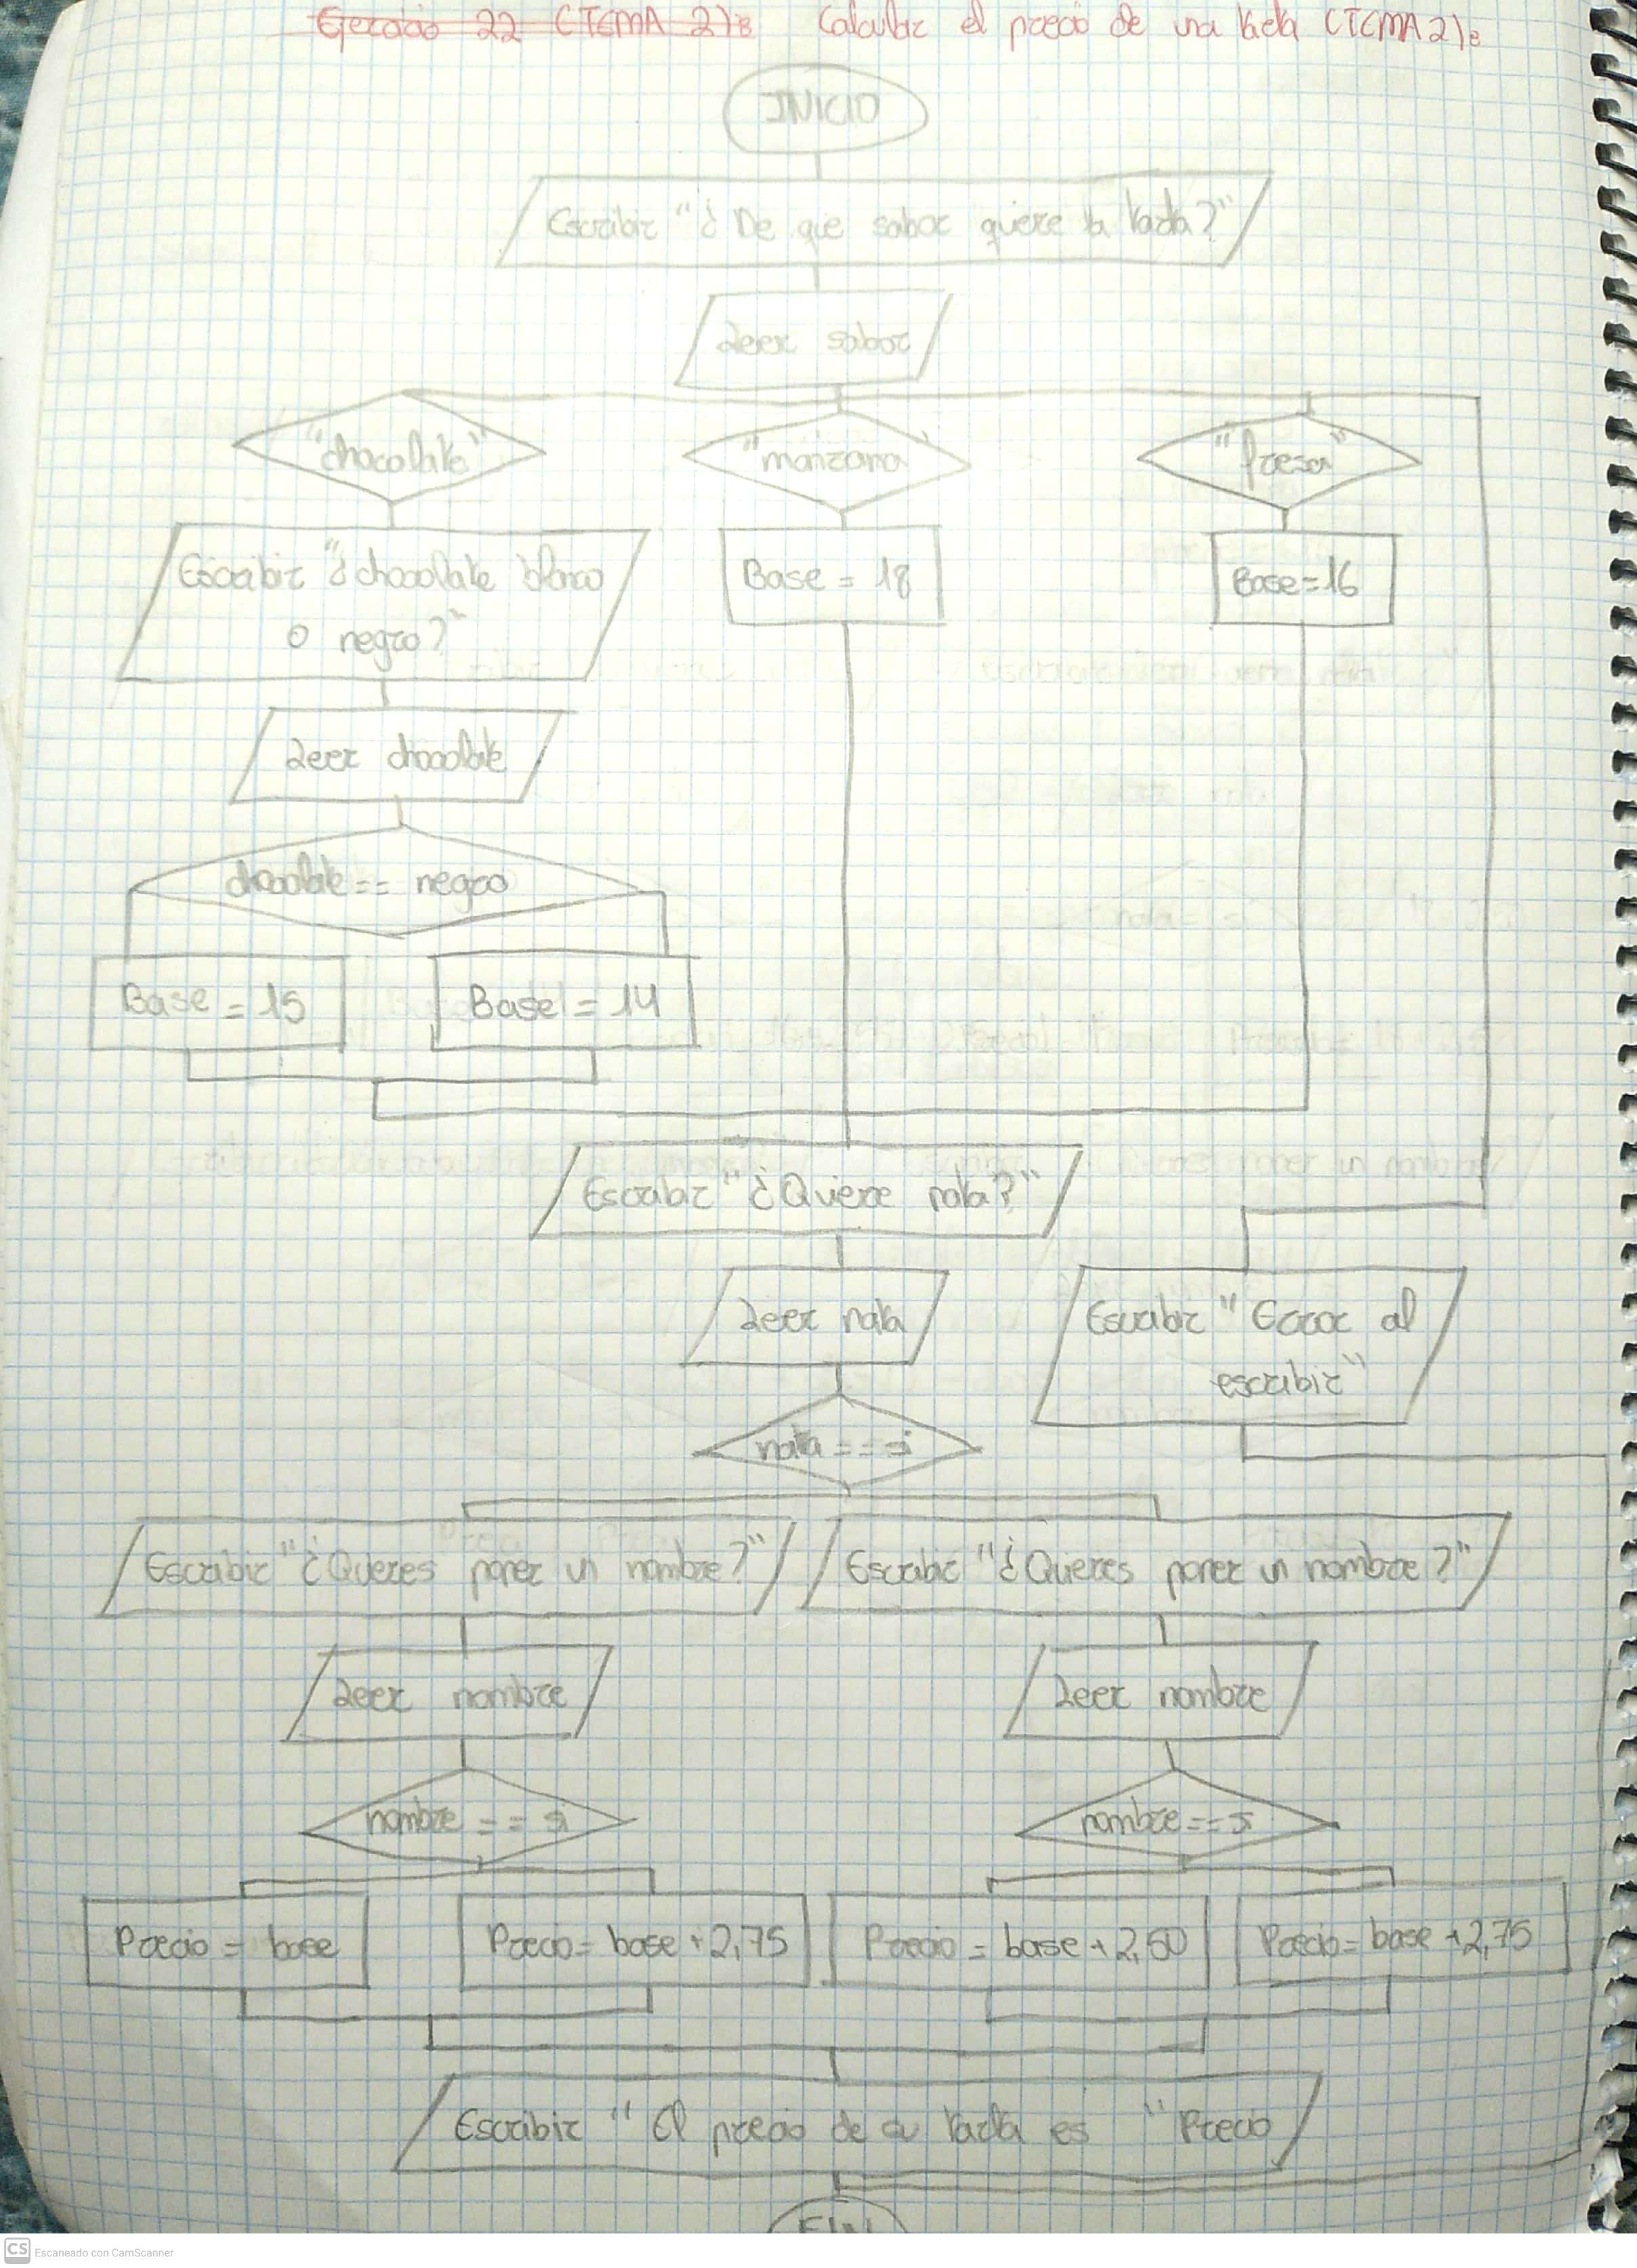 Ejercicio 22 (TEMA 2): Calcular el precio de una tarta (TEMA 2):
INICIO
Escribir "¿De que sabor quiere la tarta?"
Leer sabor
"chocolate" "manzana" "fresa"
Escribir "¿chocolate blanco
o negro?"
Base = 18
Base = 16
Leer chocolate
chocolate == negro
Base = 15
Base = 14
Escribir "¿Quiere nata?"
Leer nata
Escribir "Error al
escribir"
nata == si
Escribir "¿Quieres poner un nombre?"
Escribir "¿Quieres poner un nombre?"
Leer nombre
Leer nombre
nombre == si
nombre == si
Precio = base
Precio = base + 2,75
Precio = base + 2,50
Precio = base + 2,75
Escribir "El precio de su tarta es " Precio
FIN
CS Escaneado con CamScanner